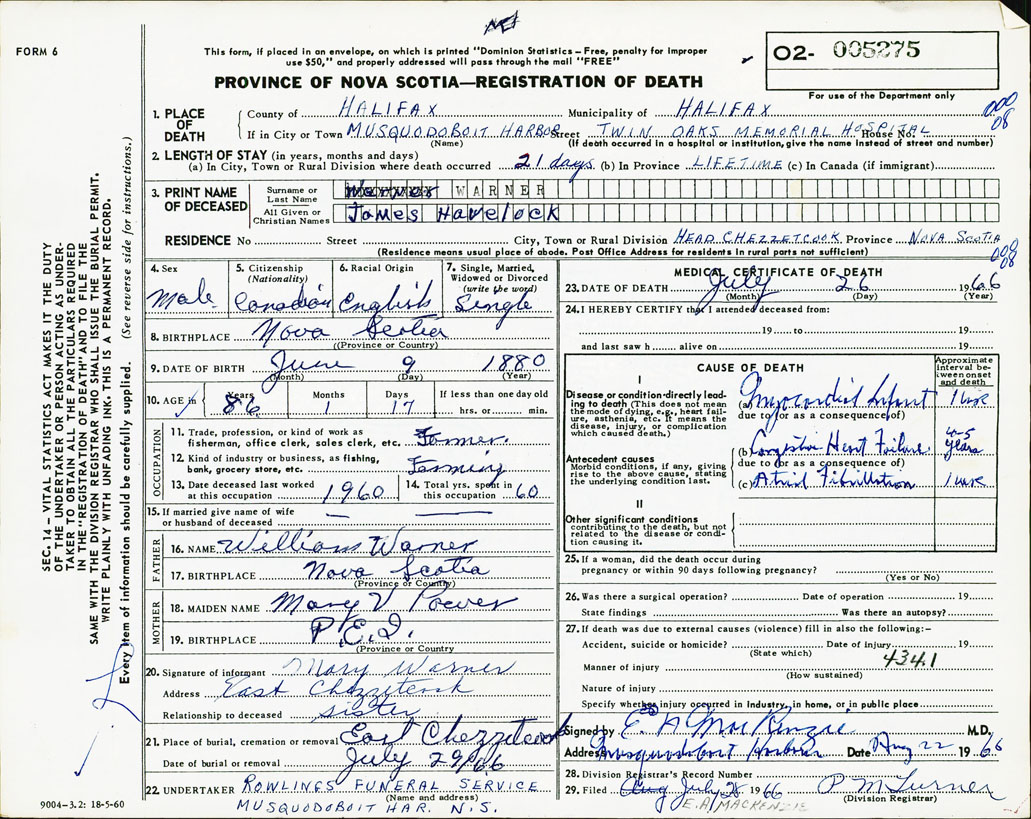 FORM 6
This form, if placed in an envelope, on which is printed "Dominion Statistics – Free, penalty for improper
use $50," and properly addressed will pass through the mail "FREE"
O2- 005275
For use of the Department only
PROVINCE OF NOVA SCOTIA—REGISTRATION OF DEATH
000
08
1. PLACE OF DEATH
County of HALIFAX Municipality of HALIFAX
If in City or Town MUSQUODOBOIT HARBOR Street TWIN OAKS MEMORIAL HOSPITAL House No.
(Name) (If death occurred in a hospital or institution, give the name instead of street and number)
2. LENGTH OF STAY (in years, months and days)
(a) In City, Town or Rural Division where death occurred 21 days (b) In Province LIFETIME (c) In Canada (if immigrant)
3. PRINT NAME OF DECEASED
Surname or Last Name Warner WARNER
All Given or Christian Names James Havelock
RESIDENCE No Street City, Town or Rural Division HEAD CHEZZETCOOK Province NOVA SCOTIA
(Residence means usual place of abode. Post Office Address for residents in rural parts not sufficient)
000
08
4. Sex Male
5. Citizenship (Nationality) Canadian
6. Racial Origin English
7. Single, Married, Widowed or Divorced (write the word) Single
8. BIRTHPLACE Nova Scotia
(Province or Country)
9. DATE OF BIRTH June 9 1880
(Month) (Day) (Year)
10. AGE in Years 86 Months 1 Days 17 If less than one day old hrs. or min.
OCCUPATION
11. Trade, profession, or kind of work as fisherman, office clerk, sales clerk, etc. Farmer.
12. Kind of industry or business, as fishing, bank, grocery store, etc. Farming
13. Date deceased last worked at this occupation 1960
14. Total yrs. spent in this occupation 60
15. If married give name of wife or husband of deceased
FATHER
16. NAME William Warner
17. BIRTHPLACE Nova Scotia
(Province or Country)
MOTHER
18. MAIDEN NAME Mary V Power
19. BIRTHPLACE P.E.I.
(Province or Country
20. Signature of informant Mary Warner
Address East Chezzetcook
Relationship to deceased sister
21. Place of burial, cremation or removal East Chezzetcook
Date of burial or removal July 29/66
22. UNDERTAKER ROWLINGS FUNERAL SERVICE
(Name and address)
MUSQUODOBOIT HAR. N.S.
MEDICAL CERTIFICATE OF DEATH
23. DATE OF DEATH July 26 1966
(Month) (Day) (Year)
24. I HEREBY CERTIFY that I attended deceased from:
19 to 19
and last saw h alive on 19
CAUSE OF DEATH
Approximate interval between onset and death
I
Disease or condition directly leading to death (This does not mean the mode of dying, e.g., heart failure, asthenia, etc. It means the disease, injury, or complication which caused death.)
(a) Myocardial Infarct 1 wk
due to (or as a consequence of)
Antecedent causes
Morbid conditions, if any, giving rise to the above cause, stating the underlying condition last.
(b) Congestive Heart Failure 4-5 years
due to (or as a consequence of)
(c) Atrial Fibrillation 1 wk
II
Other significant conditions
contributing to the death, but not related to the disease or condition causing it.
25. If a woman, did the death occur during pregnancy or within 90 days following pregnancy?
(Yes or No)
26. Was there a surgical operation? Date of operation 19
State findings Was there an autopsy?
27. If death was due to external causes (violence) fill in also the following:–
Accident, suicide or homicide? Date of injury 19
(State which) 434.1
Manner of injury
(How sustained)
Nature of injury
Specify whether injury occurred in industry, in home, or in public place
Signed by E A MacKenzie M.D.
Address Musquodoboit Harbour Date Aug 22 1966
28. Division Registrar's Record Number
29. Filed Aug July 28 1966 P M Turner
E.A. MACKENZIE (Division Registrar)
SEC. 14 – VITAL STATISTICS ACT MAKES IT THE DUTY
OF THE UNDERTAKER OR PERSON ACTING AS UNDER-
TAKER TO OBTAIN ALL THE PARTICULARS REQUIRED
IN THE "REGISTRATION OF DEATH" AND TO FILE THE
SAME WITH THE DIVISION REGISTRAR WHO SHALL ISSUE THE BURIAL PERMIT.
WRITE PLAINLY WITH UNFADING INK. THIS IS A PERMANENT RECORD.
Every item of information should be carefully supplied. (See reverse side for instructions.)
9004–3.2: 18-5-60